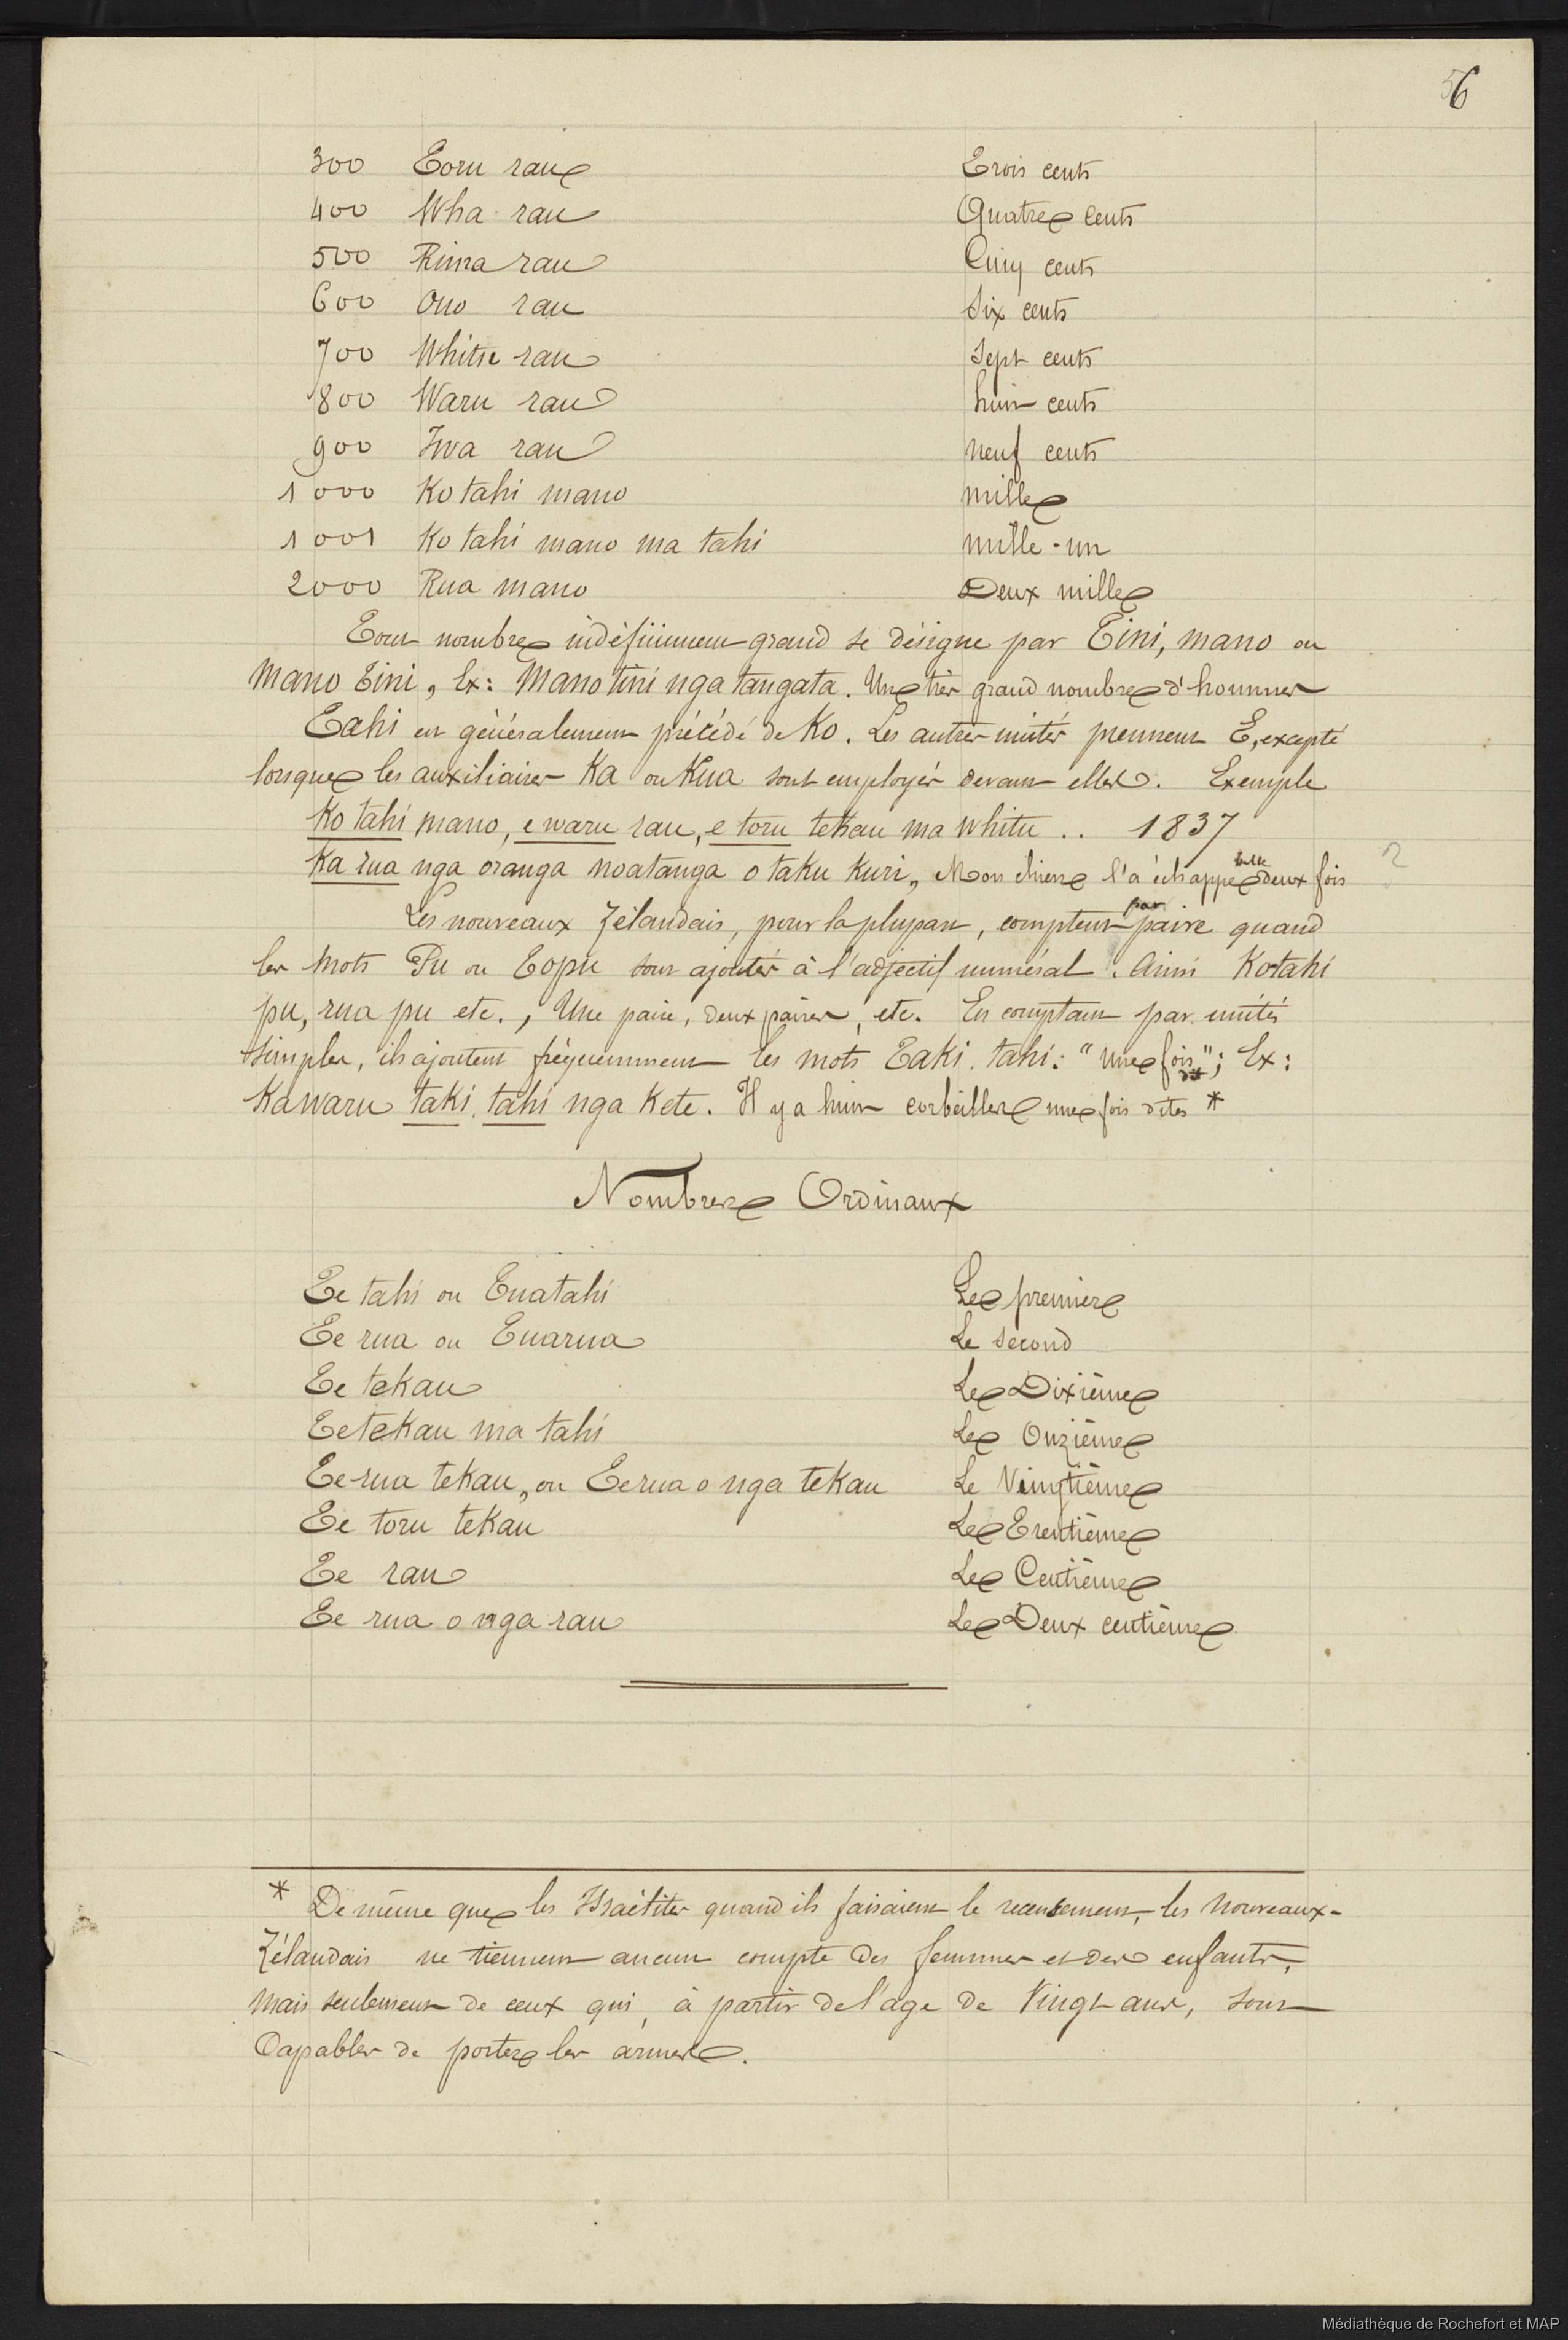 56
300 Toru rau Trois cents
400 Wha rau Quatre cents
500 Rima rau Cinq cents
600 Ono rau Six cents
700 Whitu rau Sept cents
800 Waru rau huit cents
900 Iwa rau neuf cents
1000 Ko tahi mano mille
1001 Ko tahi mano ma tahi mille-un
2000 Rua mano Deux mille
Tout nombre indéfiniment grand se désigne par Tini, mano ou
Mano Tini, Ex: Mano tini nga tangata. Un très grand nombre d'hommes
Tahi est généralement précédé de Ko. Les autres unités prennent E, excepté
lorsque les auxiliaires Ka ou Kua sont employés devant elles. Exemple
Ko tahi mano, e waru rau, e toru tekau ma whitu .. 1837
Ka rua nga oranga noatanga o taku kuri, Mon chien l'a échappé belle deux fois ?
Les nouveaux Zélandais, pour la plupart, comptent par paire quand
les mots Pu ou Topu sont ajoutés à l'adjectif numéral. Ainsi Kotahi
pu, rua pu etc., Une paire, deux paires, etc. En comptant par unités
simples, ils ajoutent fréquemment les mots Taki. tahi: "Une fois"; Ex:
Ka waru taki. tahi nga Kete. Il y a huit corbeilles une fois dites *
Nombres Ordinaux
Te tahi ou Tuatahi Le premier
Te rua ou Tuarua Le second
Te tekau Le Dixième
Te tekau ma tahi Le Onzième
Te rua tekau, ou Te rua o nga tekau Le Vingtième
Te toru tekau Le Trentième
Te rau Le Centième
Te rua o nga rau Le Deux centième
* De même que les Israélites quand ils faisaient le recensement, les Nouveaux-
Zélandais ne tiennent aucun compte des femmes et des enfants,
mais seulement de ceux qui, à partir de l'age de Vingt ans, sont
Capables de porter les armes.
Médiathèque de Rochefort et MAP